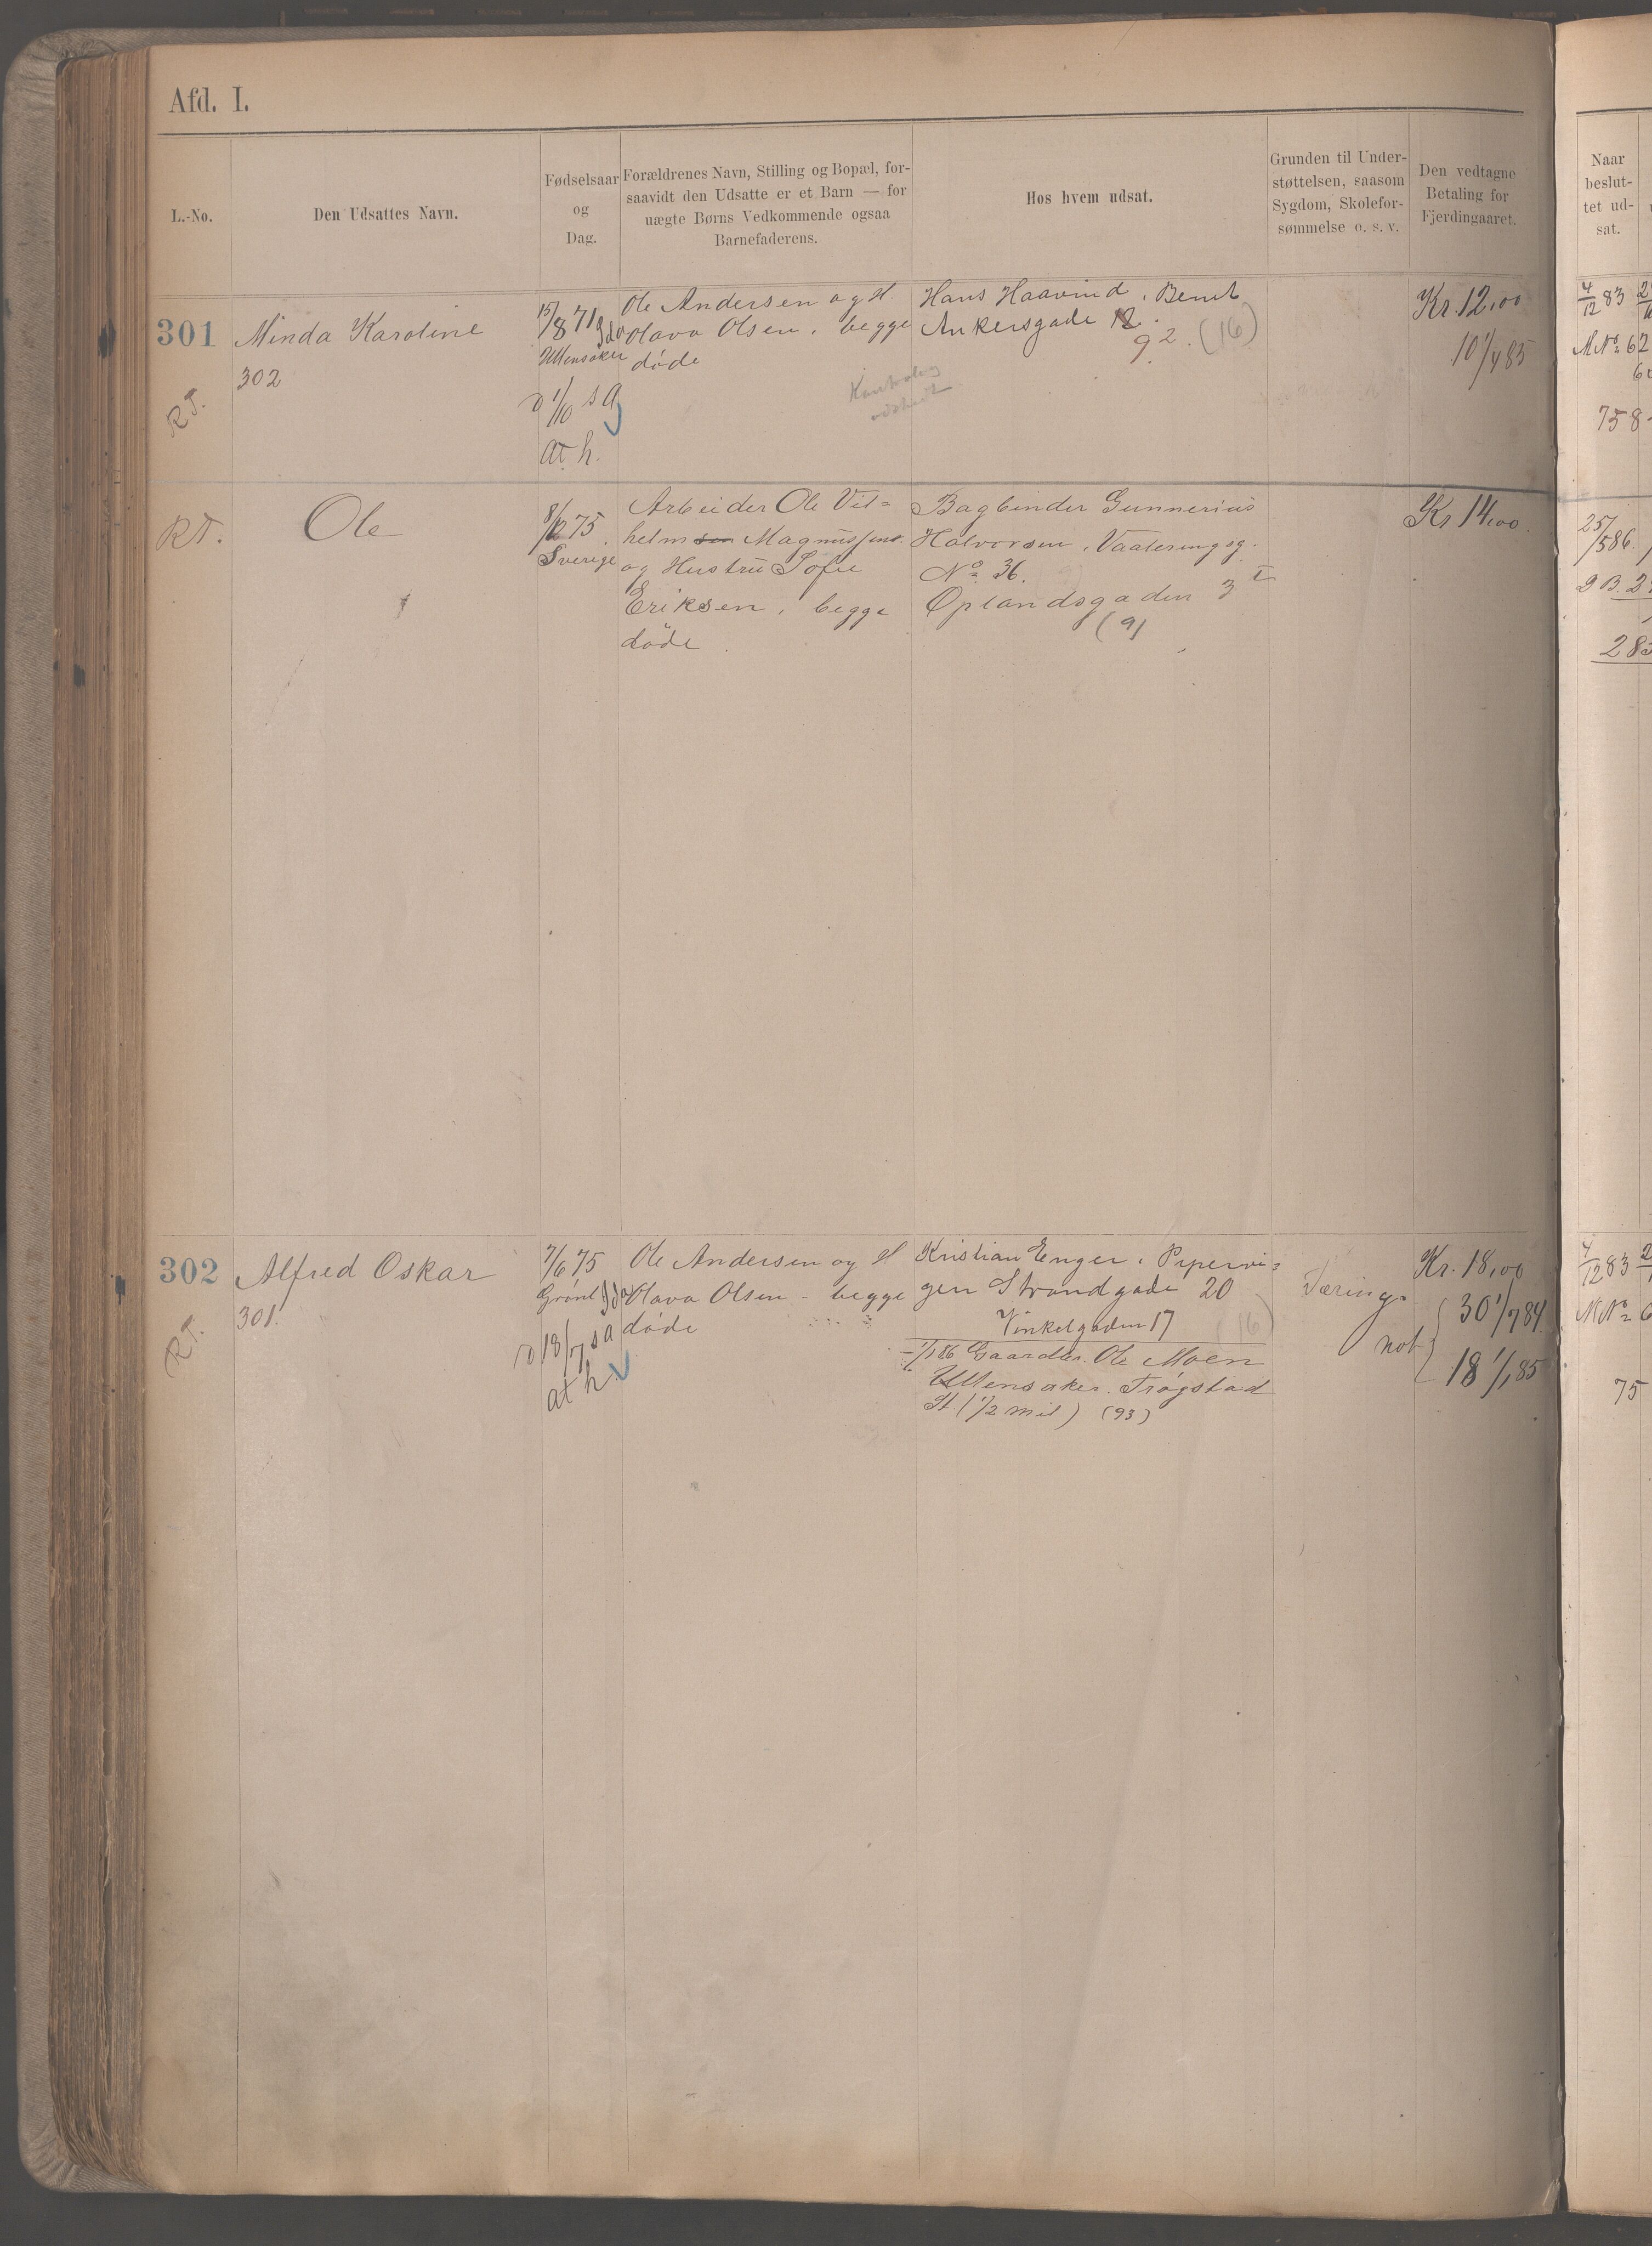 Afd. I.
L.-No.
Den Udsattes Navn.
Fødselsaar
og
Dag.
Forældrenes Navn, Stilling og Bopæl, for-
saavidt den Udsatte er et Barn — for
uægte Børns Vedkommende ogsaa
Barnefaderens.
Hos hvem udsat.
Grunden til Under-
støttelsen, saasom
Sygdom, Skolefor-
sømmelse o. s. v.
Den vedtagne
Betaling for
Fjerdingaaret.
Naar
beslut-
tet ud-
sat.
301
R.T.
Minda Karoline
302
15/8 71
Ullensaker
D 1/10 s a
at h.
Ole Andersen og H.
Olava Olsen, begge
døde
Hans Haavind, Bernt
Ankersgade 12.
9 2. (16)
Kr. 12,00
10 1/4 85
4/12 83
M No 62
758
RT.
Ole
8/12 75.
Sverige
Arbeider Ole Vil-
helmsen Magnussen
og Hustru Sofie
Eriksen, begge
døde
Bagbinder Gunnerius
Halvorsen, Vaaleringsg.
No 36.
Oplandsgaden 3 I
(9)
Kr 14,00.
25/5 86.
283
302
R.T.
Alfred Oskar
301.
7/6 75
Grønl
D 18/7 s a
at h
Ole Andersen og H
Olava Olsen - begge
døde
Kristian Enger, Pipervi-
gen Strandgade 20
Vinkelgaden 17 (16)
1/1 86 Gaardbr. Ole Moen
Ullensaker. Trøgstad
St. (1/2 mil) (93)
Tærings
not
Kr. 18,00
30 1/7 84
18 1/1 85
4/12 83
M No 6
75